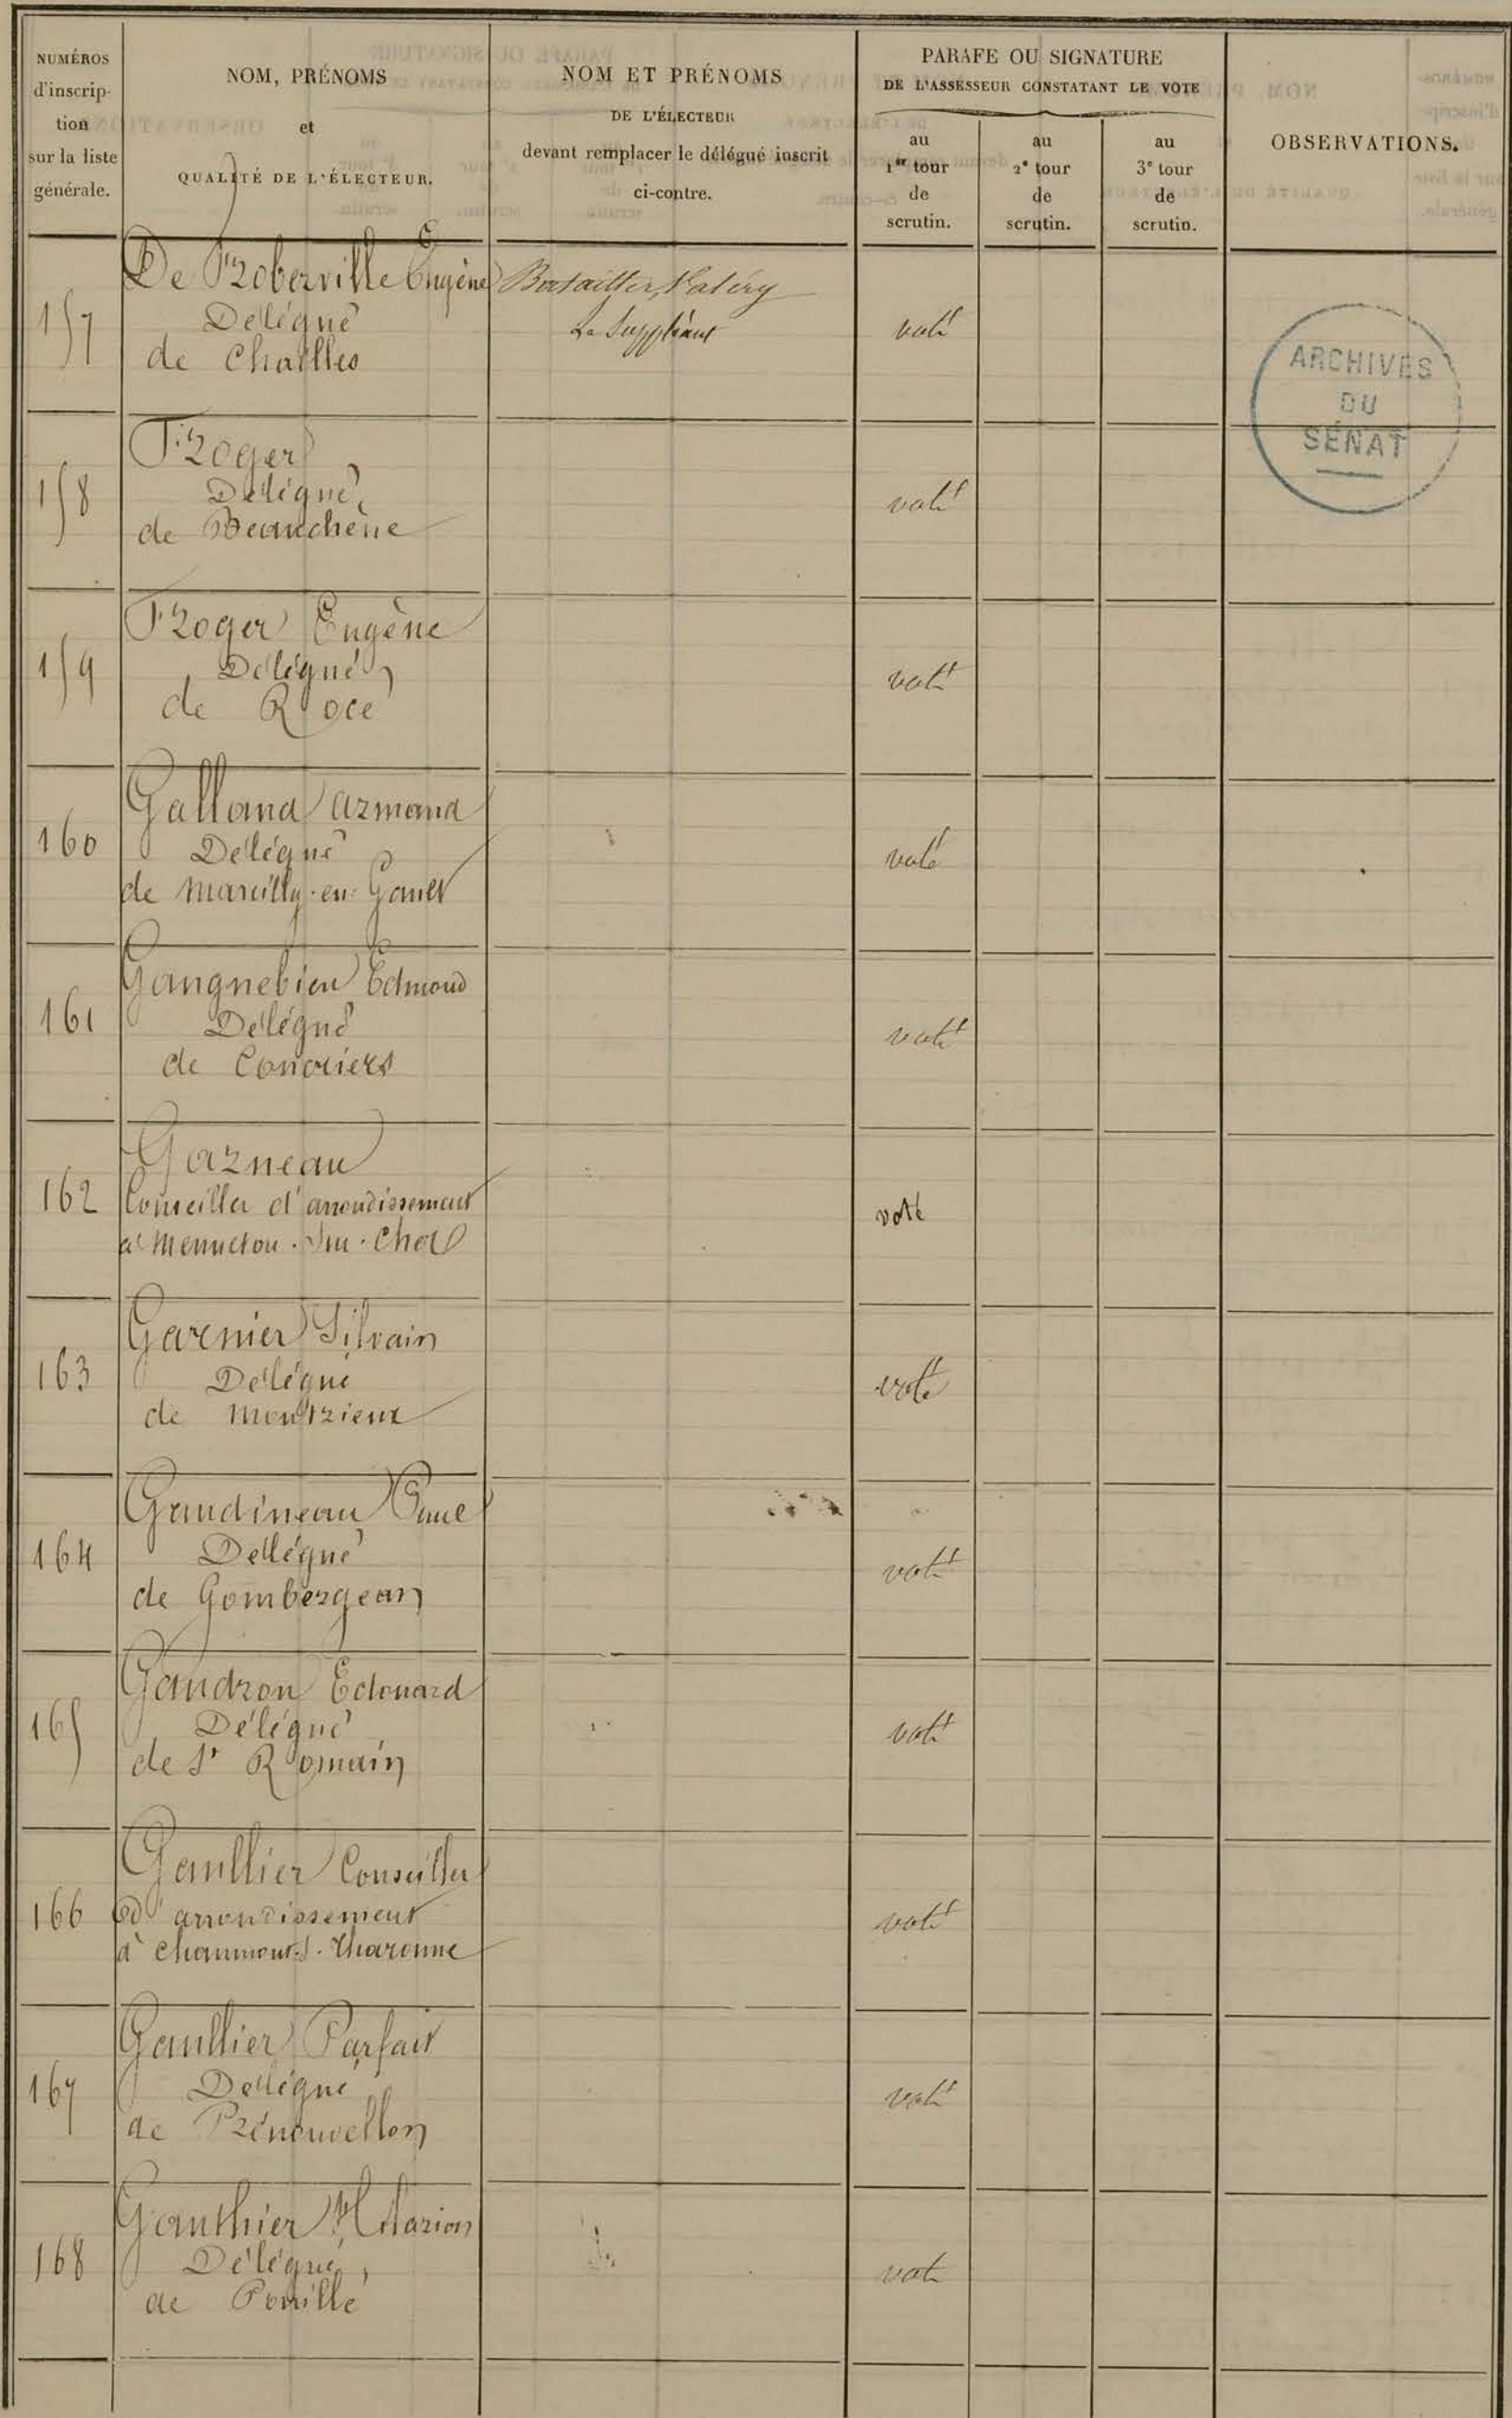 NUMÉROS
d'inscrip-
tion
sur la liste
générale.
NOM, PRÉNOMS
et
QUALITÉ DE L'ÉLECTEUR.
NOM ET PRÉNOMS
DE L'ÉLECTEUR
devant remplacer le délégué inscrit
ci-contre.
PARAFE OU SIGNATURE
DE L'ASSESSEUR CONSTATANT LE VOTE
au
1er tour
de
scrutin.
au
2e tour
de
scrutin.
au
3e tour
de
scrutin.
OBSERVATIONS.
157
De Froberville Eugène
Délégué
de Chailles
Valéry
Le Suppléant
voté
ARCHIVES
DU
SÉNAT
158
Froger
Délégué
de Beauchêne
voté
159
Froger Eugène
Délégué
de Rocé
voté
160
Galland Armand
Délégué
de Marcilly-en-Gault
voté
161
Gangnebien Edmond
Délégué
de Conoriers
voté
162
Garneau
Conseiller d'arrondissement
à Mennetou-Sur-Cher
voté
163
Garnier Silvain
Délégué
de Montrieux
voté
164
Gaudineau Paul
Délégué
de Gombergean
voté
165
Gaudron Edouard
Délégué
de St Romain
voté
166
Gaullier Conseiller
d'arrondissement
à Chaumont-s-Tharonne
voté
167
Gaullier Parfait
Délégué
de Prénouvellon
voté
168
Gauthier Hilarion
Délégué
de Pouillé
voté